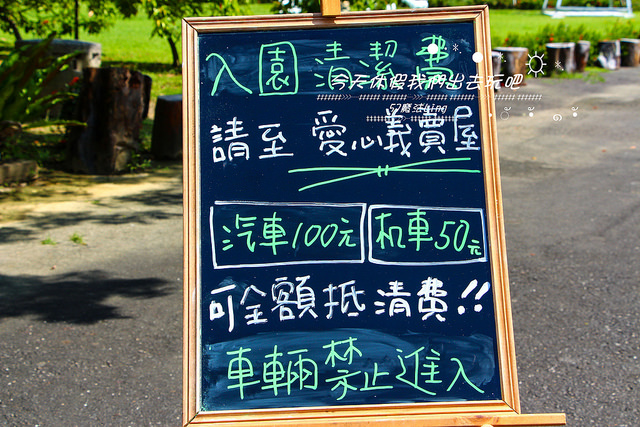 入園清潔費
今天休假我們出去玩吧
請至 愛心義賣屋
汽車100元 机車50元
可全額抵清費!!
車輛禁止進入